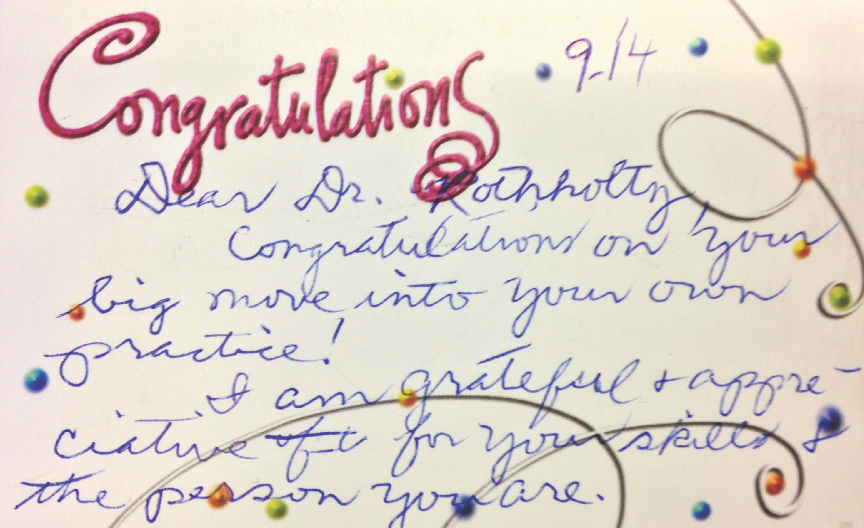 Congratulations 9-14
Dear Dr. Rothholtz,
Congratulations on your
big move into your own
practice!
I am grateful + appre-
ciative for your skills &
the person you are.